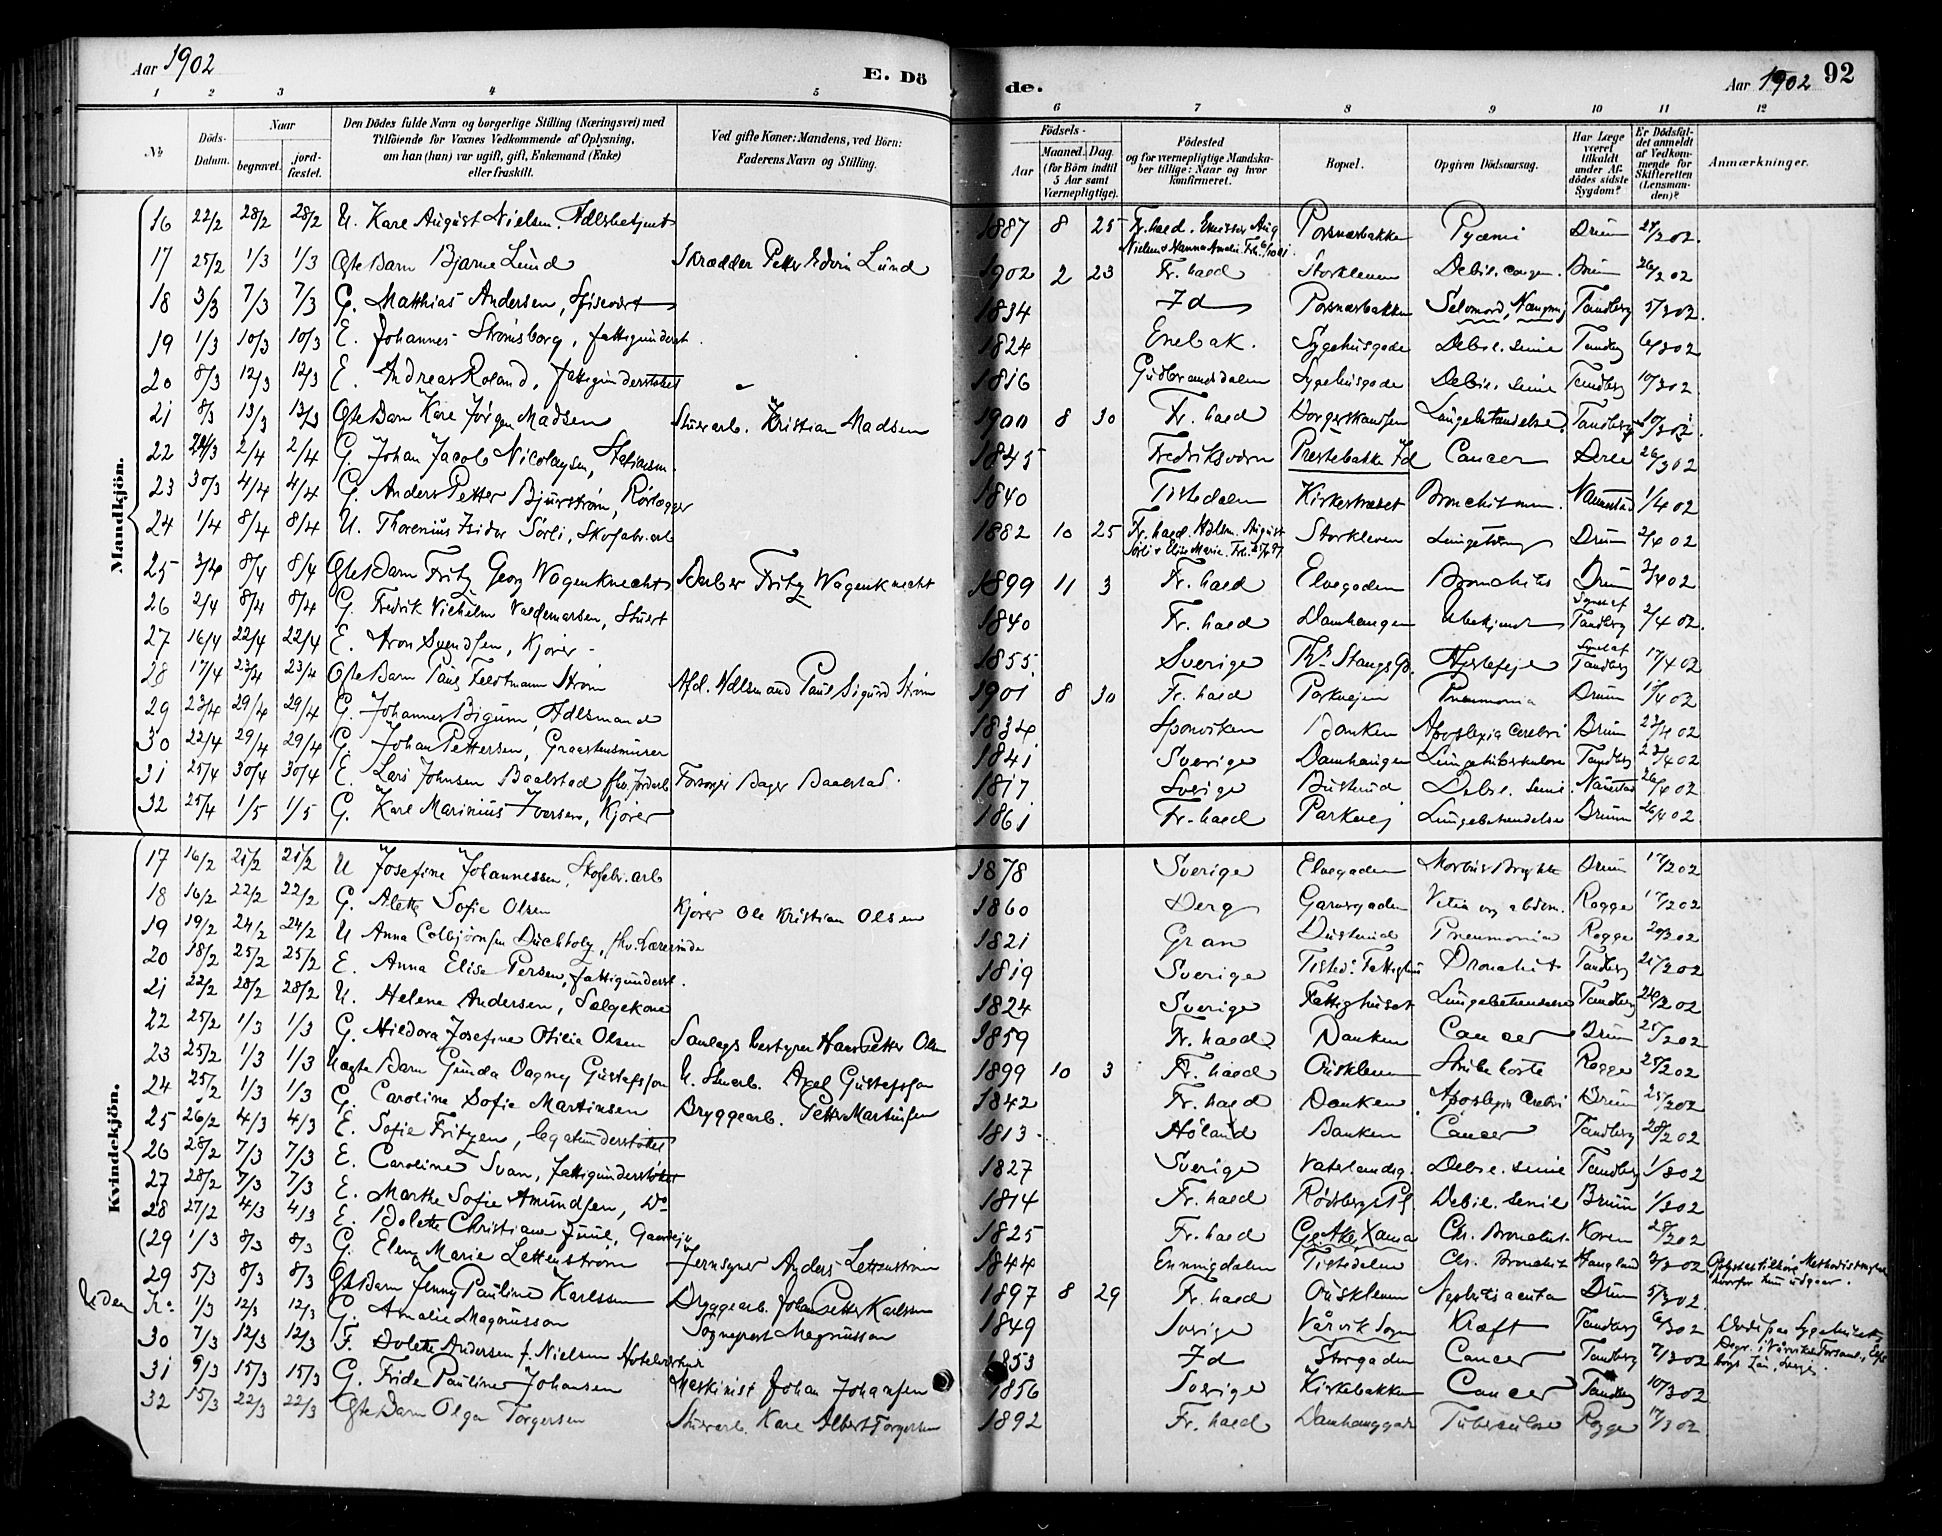 Aar 1902 E. Dö
de. Aar 1902 92
1 2 3 4 5
6 7 8 9 10 11 12
№ Döds-Datum. Naar begravet. jord-fæstet. Den Dödes fulde Navn og borgerlige Stilling (Næringsvei) med Tilföiende for Voxnes Vedkommende af Oplysning, om han (hun) var ugift, gift, Enkemand (Enke) eller fraskilt. Ved gifte Koner: Mandens, ved Börn: Faderens Navn og Stilling.
Födsels- Aar Maaned. Dag. (for Börn indtil 5 Aar samt Værnepligtige). Födested og for værnepligtige Mandska-ber tillige: Naar og hvor konfirmeret. Bopæl. Opgiven Dödsaarsag. Har Læge været tilkaldt under Af-dödes sidste Sygdom? Er Dödsfal-det anmeldt af Vedkom-mende for Skifteretten (Lensman-den)? Anmærkninger.
Mandkjön.
16 22/2 28/2 28/2 U. Karl August Nielsen. Hdlsbetjent 1887 8 25 Fr.hald. Porsnæsbakken Pyæmi Bruun 27/2 02.
17 25/2 1/3 1/3 Ægte Barn Bjarne Lund Skrædder Petter Edvin Lund 1902 2 23 Fr. hald Storkleven Debil. congen. Bruun 26/2 02
18 3/3 7/3 7/3 G. Matthias Andersen, Spisevært 1834 Id Porsnæsbakken Selvmord, Hængning Tandberg 5/3 02.
19 1/3 10/3 10/3 E. Johannes Strömsborg, fattigunderst. 1824 Enebak. Sygehusgade Debil. senil Tandberg 6/3 02
20 8/3 12/3 12/3 E. Andreas Roland, fattigunderstøttet 1816 Gudbrandsdalen Sygehusgade Debil. senil Tandberg 10/3 02
21 8/3 13/3 13/3 Ægte Barn Karl Jörgen Madsen Stuerarb. Kristian Madsen 1900 8 30 Fr. hald Borgerskandsen Lungebetændelse Tandberg 10/3 02.
22 24/3 2/4 2/4 G. Johan Jacob Nicolaysen, 1845 Fredriksværn Prestebakke Id Cancer 26/3 02
23 30/3 4/4 4/4 G. Anders Petter Bjurström, Rörlægger 1840 Tistedalen Kirkestrædet Naustad 1/4 02
24 1/4 8/4 8/4 U. Thorenius Isidor Sörli, Skofabr.arb 1882 10 25 Fr. hald. Storkleven Bruun 2/4 02
25 3/4 8/4 8/4 Ægte Barn Fritz Georg Wagenknecht Barber Fritz Wagenknecht 1899 11 3 Fr. hald Elvegaden Bronchitis Bruun 3/4 02
26 2/4 8/4 8/4 G. Fredrik Vilhelm Valdemarsen, Stuert 1840 Fr. hald Damhaugen Ubekjendt Synet af Tandberg 2/4 02.
27 16/4 22/4 22/4 E. Aron Svendsen, Kjörer 1855 Sverige Ths Stangs Gd. Hjertefeil Synet af Tandberg 17/4 02
28 17/4 23/4 23/4 Ægte Barn Paul Ström Afd. Hdlsmand Paul Sigurd Ström 1901 8 30 Fr. hald Parkveien Pneumonia Bruun 18/4 02
29 23/4 29/4 29/4 G. Johannes Bigum, Hdlsmand 1834 Sponviken Banken Apoplexia cerebri Bruun 23/4 02
30 22/4 29/4 29/4 G. Johan Pettersen, Graastensmurer 1841 Sverige Damhaugen Lungetuberkulose Tandberg 23/4 02
31 25/4 30/4 30/4 E. Lars Johnsen Baalstad Forsorger Bager Baalstad. 1817 Sverige Busterud Debil. senil. Naustad 26/4 02
32 25/4 1/5 1/5 G. Karl Marinius Iversen, Kjörer 1861 Fr. hald Parkvej Lungebetændelse Bruun 26/4 02
Kvindekjön.
17 16/2 21/2 21/2 U Josefine Johannessen, Skofabr.arb 1878 Sverige Elvegaden Morbus Brightii Bruun 17/2 02
18 16/2 22/2 22/2 G. Alette Sofie Olsen Kjörer Ole Kristian Olsen 1860 Berg Garvergaden Rogge 17/2 02
19 19/2 24/2 24/2 U Anna Colbjörnsen Buchholz, fhv. Lærerinde 1821 Gran Busterud Pneumonia Rogge 20/2 02
20 18/2 25/2 25/2 E. Anna Elisa Persen, fattigunderst. 1819 Sverige Tisted. Fattighus Bronchit Tandberg 21/2 02
21 22/2 28/2 28/2 U. Helena Andersen, Sælgekone 1824 Sverige Fattighuset Lungebetændelse Tandberg 24/2 02
22 25/2 1/3 1/3 G. Hildora Josefine Otilia Olsen Samlags bestyrer Hans Petter Olsen 1859 Fr. hald Banken Cancer Bruun 25/2 02
23 25/2 1/3 1/3 Uægte Barn Gunda Dagny Gustafsson U. Stuerb. Axel Gustafsson 1899 10 3 Fr. hald Ouskleven Strubehoste Rogge 25/2 02
24 25/2 1/3 1/3 G. Caroline Sofie Martinsen Bryggearb. Petter Martinsen 1842 Fr. hald Banken Apoplexia cerebri Bruun 25/2 02
25 26/2 4/3 4/3 E. Sofie Fritzen, legatunderstöttet 1813 Höland Banken Cancer Tandberg 28/2 02
26 28/2 7/3 7/3 E. Caroline Svan, fattigunderstöttet 1827 Sverige Vaterlandsg. Debil. senil Tandberg 1/3 02
27 28/2 7/3 7/3 E. Marthe Sofie Amundsen, Do 1814 Fr. hald Rödsbergs Pl. Debil. senil Bruun 1/3 02
28 27/2 4/3 4/3 E. Bolette Christiane Juul, 1825 Fr. hald Chr. Bronchit. Koren 28/2 02
(29 1/3 8/3 8/3 G. Elena Marie Lettenström Jernsyner Anders Lettenström 1844 Enningdalen Tistedalen Chr. Bronchit Haugland 3/3 02 hvorfor hun udgaar.
29 5/3 8/3 8/3 Ægte Barn Jenny Pauline Karlsson Bryggearb. Johan Petter Karlsson 1897 8 29 Fr. hald Ouskleven Nephritis acuta Bruun 5/3 02.
Uden No 1/3 12/3 12/3 G. Amalie Magnusson Sogneprest Magnusson 1849 Sverige Vårvik Sogn Kræft Tandberg 6/3 02
30 7/3 12/3 12/3 F. Bolette Andersen f. Nielsen 1853 Id Storgaden Cancer Tandberg 7/3 02
31 9/3 15/3 15/3 G. Frida Pauline Johansen Maskinist Johan Johansen 1856 Sverige Kirkebakken Cancer Tandberg 10/3 02
32 15/3 22/3 22/3 Ægte Barn Olga Torgersen Stuerarb. Karl Albert Torgersen 1892 Fr. hald Damhauggaden Tuberculose Rogge 17/3 02